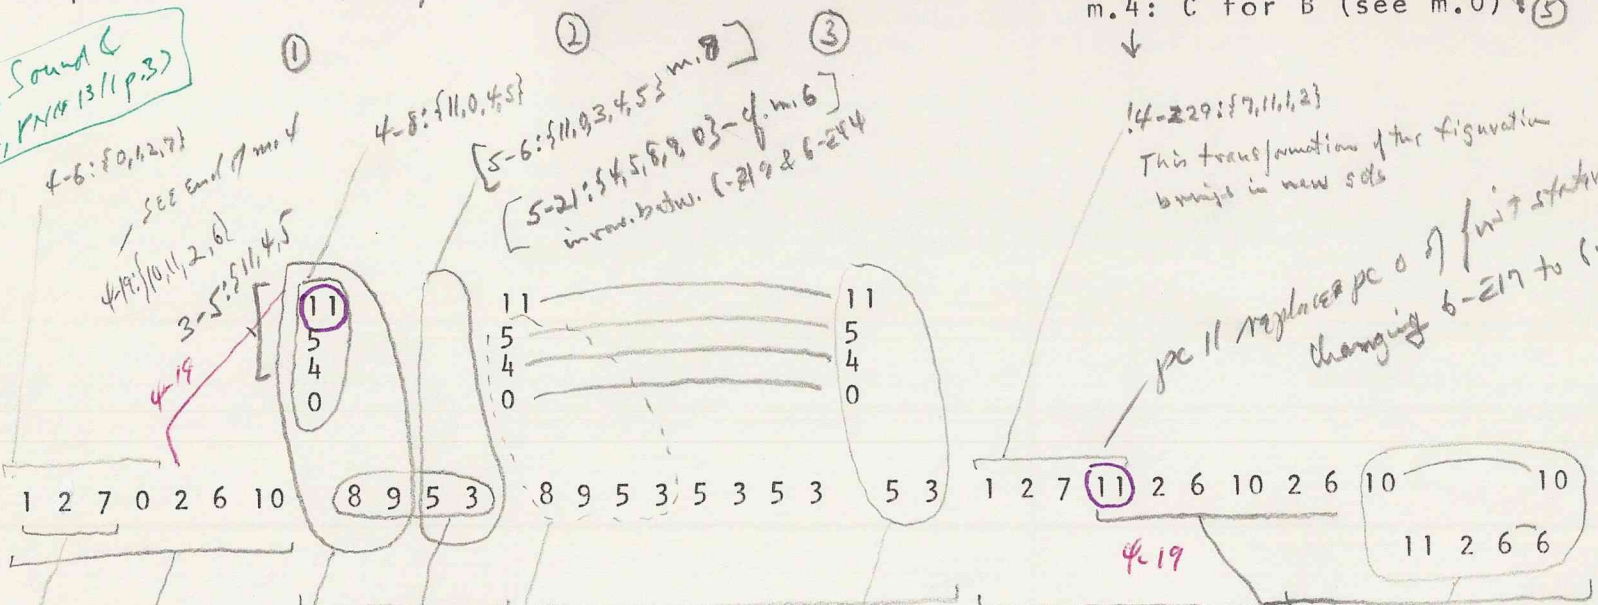 m.4: C for B (see m.0)
① ② ③ ⑤
Sound &
13/1 p.3)
4-6:{0,1,2,7}
SEE end of m.4
4-19:{10,11,2,6}
3-5:{11,4,5
4-8:{11,0,4,5}
[5-6:{11,0,3,4,5} m.8]
[5-21:{4,5,8,9,0}-cf.m.6]
invar. betw. 6-Z19 & 6-Z44
!4-Z29:{7,11,1,2}
This transformation of the figuration
brings in new sets
pc 11 replaces pc 0 of first
changing 6-Z17 to
4-19
11 11 11
5 5 5
4 4 4
0 0 0
1 2 7 0 2 6 10 8 9 5 3 8 9 5 3 5 3 5 3 5 3 1 2 7 11 2 6 10 2 6 10 10
11 2 6 6
4-19